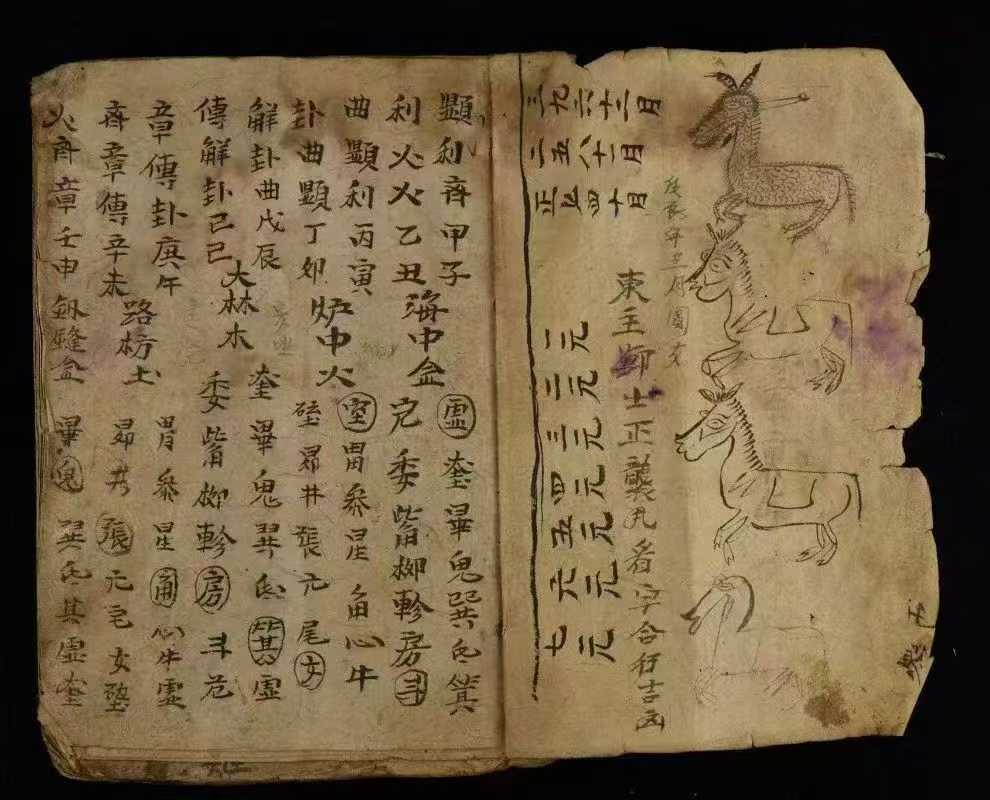 三九六十二月
二五八十一月
正五四十月
東主鄭士正襲凡看字合行吉凶
一元
二元
三元
四元
五元
六元
七元
顯利斉甲子
海中金
虛奎畢鬼巽氐箕
利火火乙丑
危委觜柳軫房斗
曲顯利丙寅
炉中火
室胃參星角心牛
卦曲顯丁卯
壁昴井張亢尾女
解卦曲戊辰
大林木
奎畢鬼巽氐箕虛
傳解卦己己
委觜柳軫房斗危
章傳卦庚午
路枋土
胃參星角心牛虛
斉章傳辛未
昴井張亢毛女壁
火斉章壬申
釼鏠金
畢鬼巽氐其虛奎